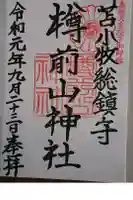 苫小牧総鎮守
樽前山神社
令和元年九月二十三日奉拝